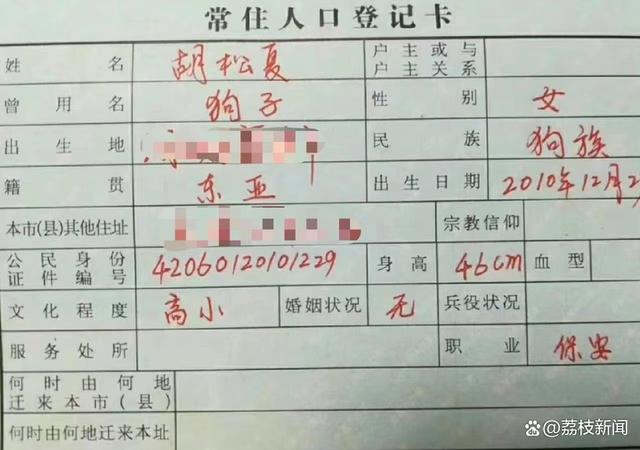 常住人口登记卡
姓名 胡松夏 户主或与户主关系
曾用名 狗子 性别 女
出生地 民族 狗族
籍贯 东亚 出生日期 2010年12月2
本市(县)其他住址 宗教信仰
公民身份证件编号 42060120101229 身高 46cm 血型
文化程度 高小 婚姻状况 无 兵役状况
服务处所 职业 保安
何时由何地迁来本市(县)
何时由何地迁来本址
荔枝新闻